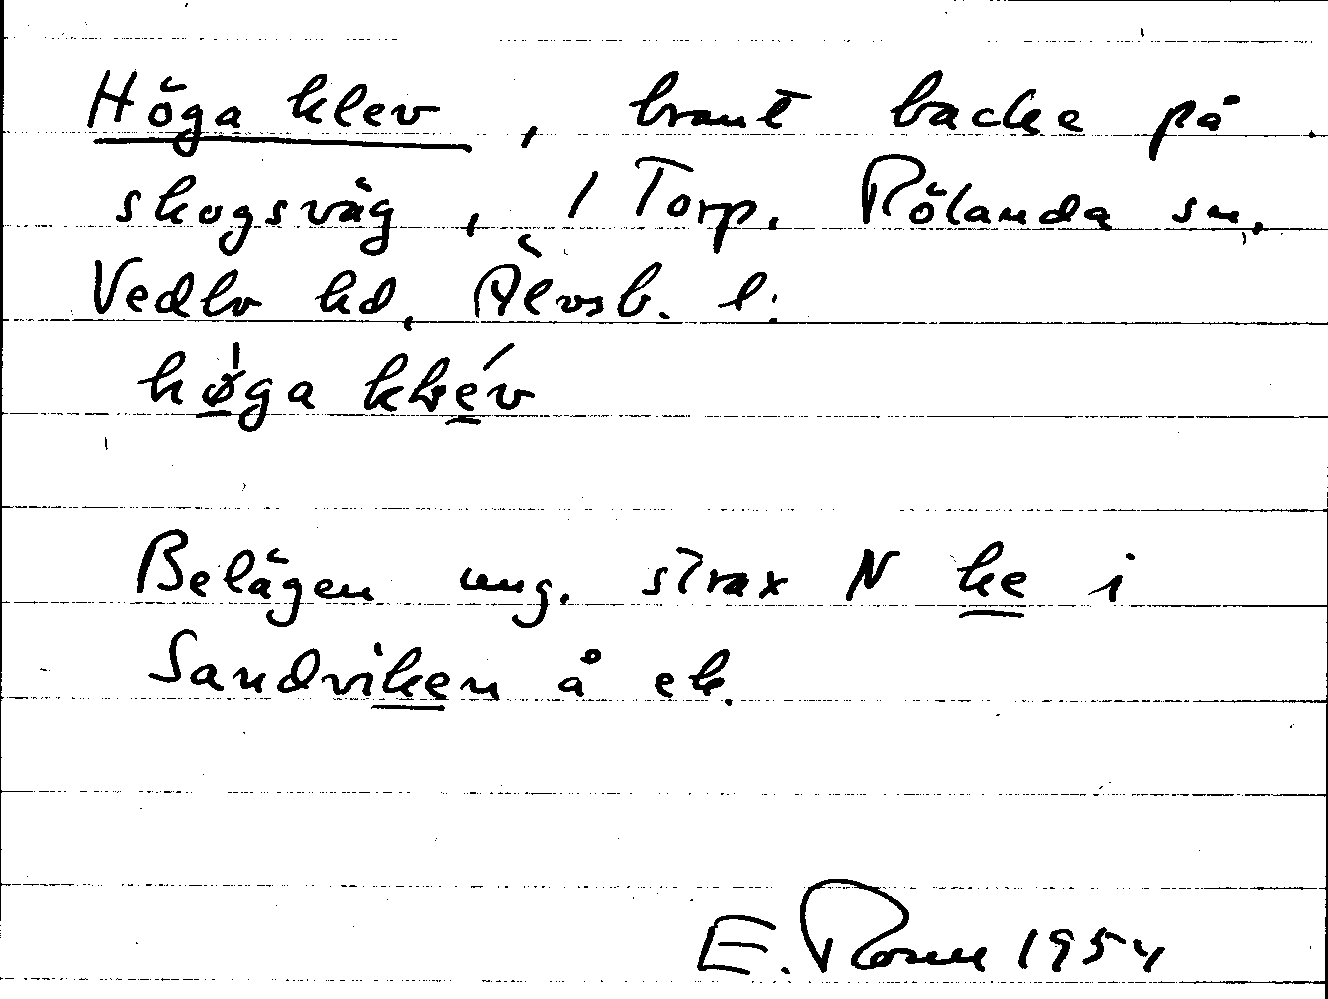 Höga klev, brant backe på
skogsväg, 1 Torp. Rölanda sn,
Vedbo hd, Älvsb. l:
hø̱ga kle̱v
Belägen ung. strax N ke i
Sandviken å ek.
E. 1954